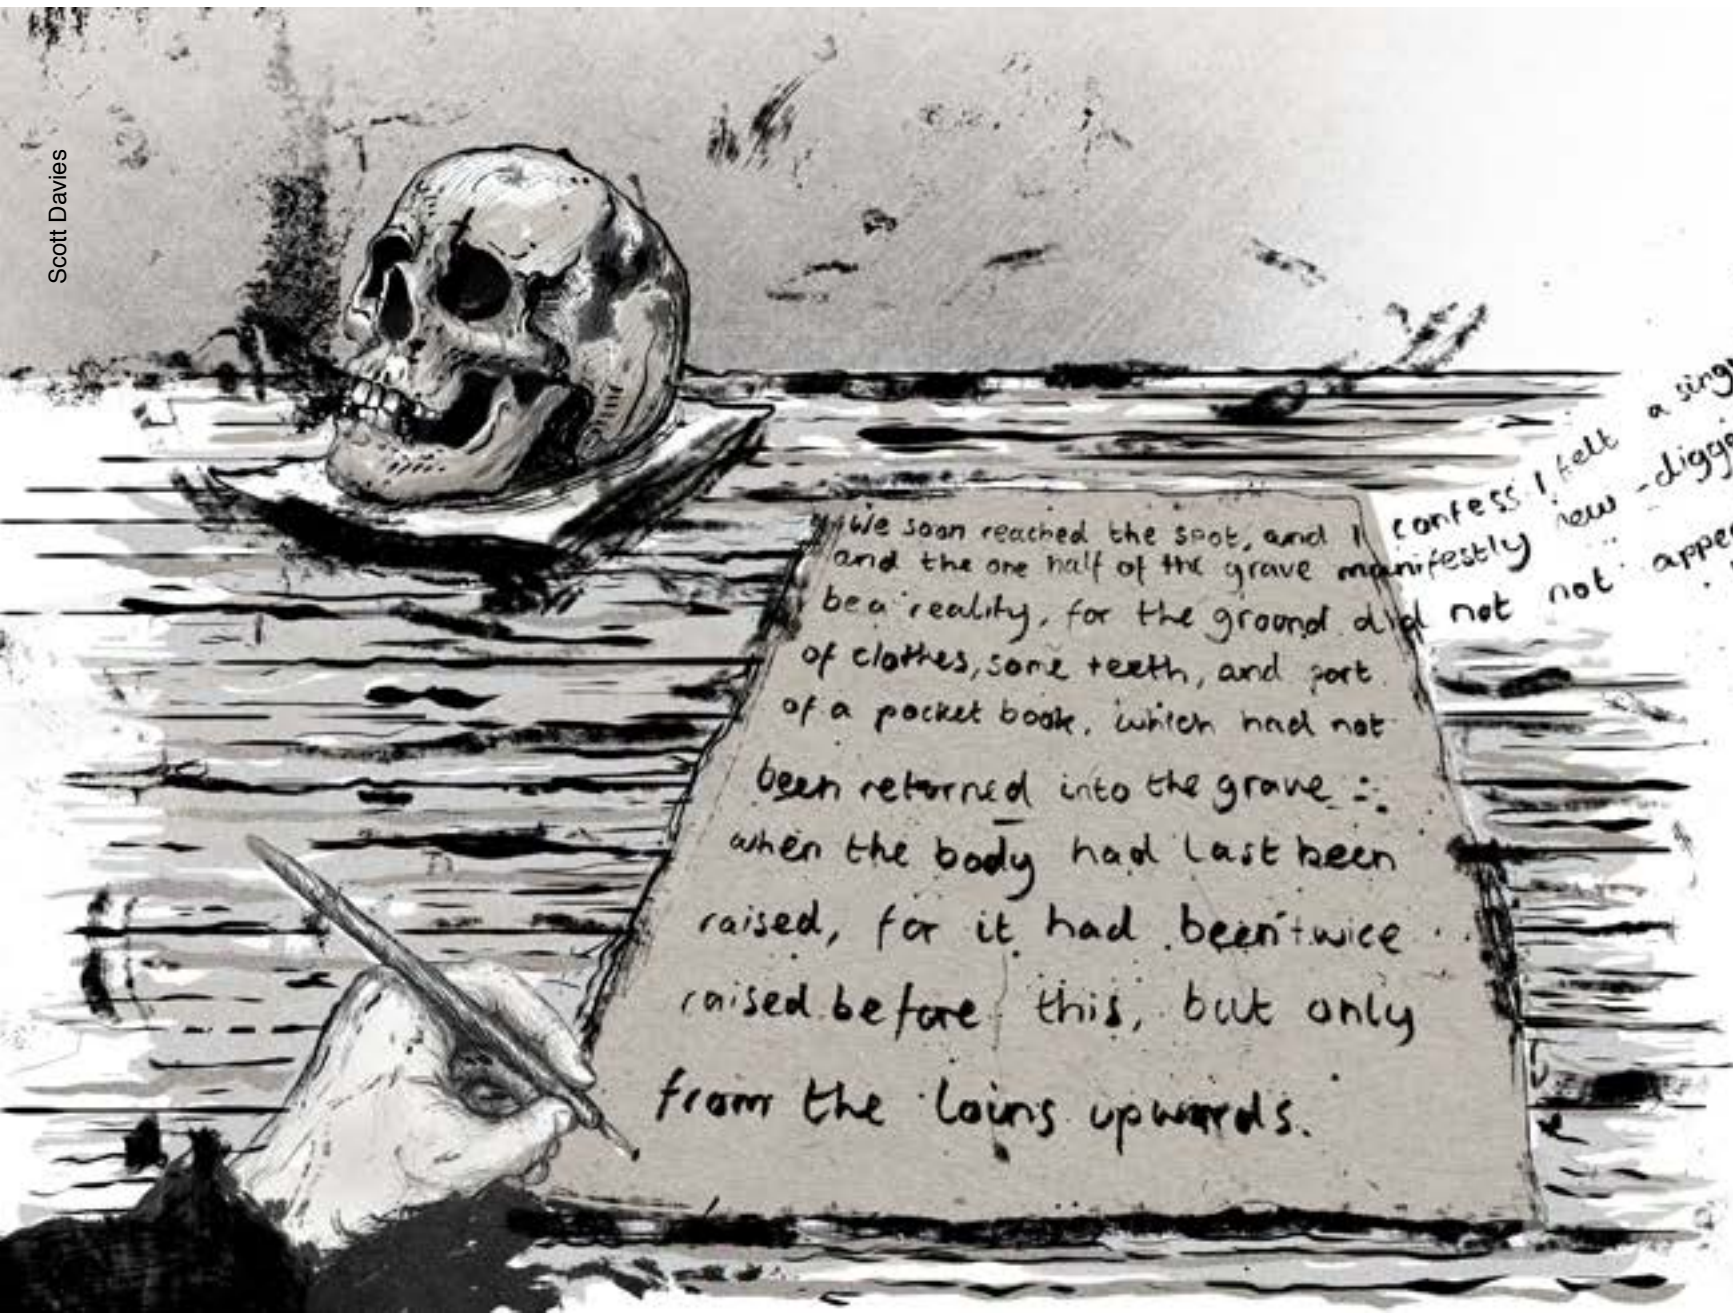 Scott Davies
We soon reached the spot, and I confess I felt a sing
and the one half of the grave manifestly new-digg
be a reality, for the ground did not not appe
of clothes, some teeth, and part
of a pocket book, which had not
been returned into the grave :
when the body had last been
raised, for it had been twice
raised before this, but only
from the loins upwards.